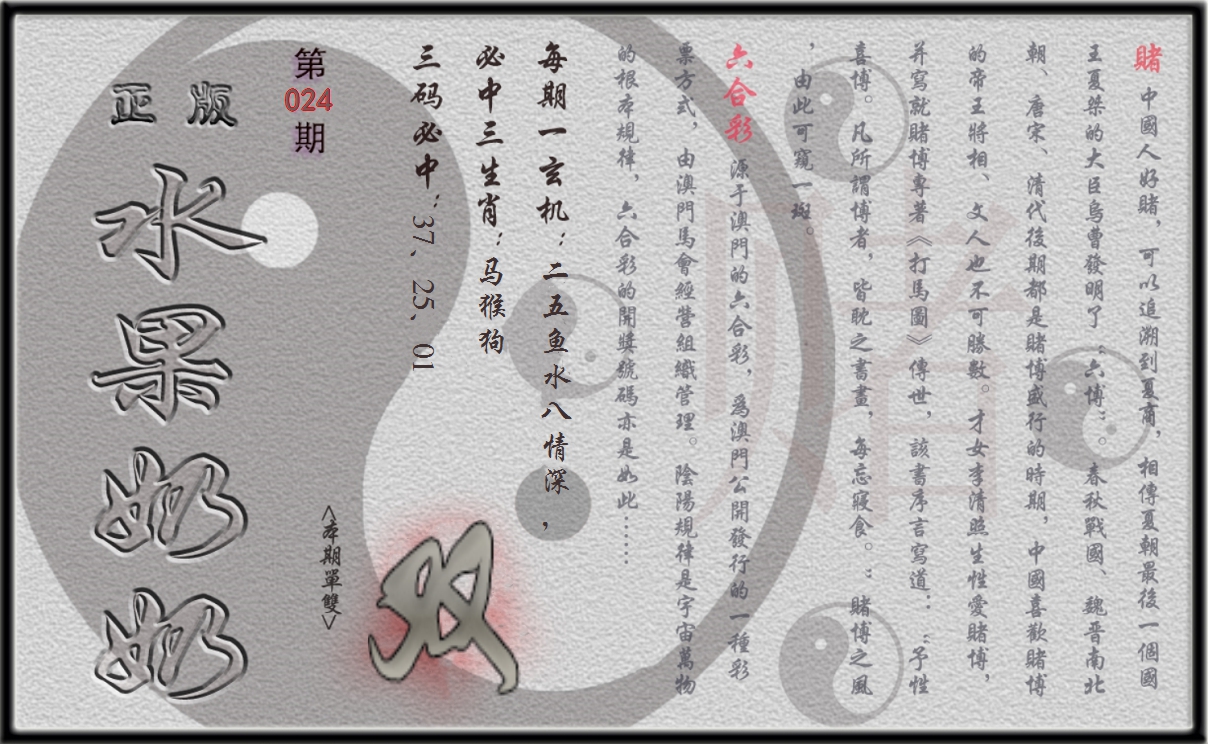 賭 中國人好賭，可以追溯到夏商，相傳夏朝最後一個國
王夏桀的大臣烏曹發明了“六博”。春秋戰國、魏晋南北
朝、唐宋、清代後期都是賭博盛行的時期，中國喜歡賭博
的帝王將相、文人也不可勝數。才女李清照生性愛賭博，
并寫就賭博專著《打馬圖》傳世，該書序言寫道：“予性
喜博。凡所謂博者，皆耽之書畫，每忘寢食。：賭博之風
，由此可窺一斑。
六合彩 源于澳門的六合彩，爲澳門公開發行的一種彩
票方式，由澳門馬會經營組織管理。陰陽規律是宇宙萬物
的根本規律，六合彩的開獎號碼亦是如此……
每期一玄机：二五鱼水八情深，
必中三生肖：马猴狗
三码必中：37、25、01
双
<本期單雙>
第
024
期
正版
水果奶奶
赌